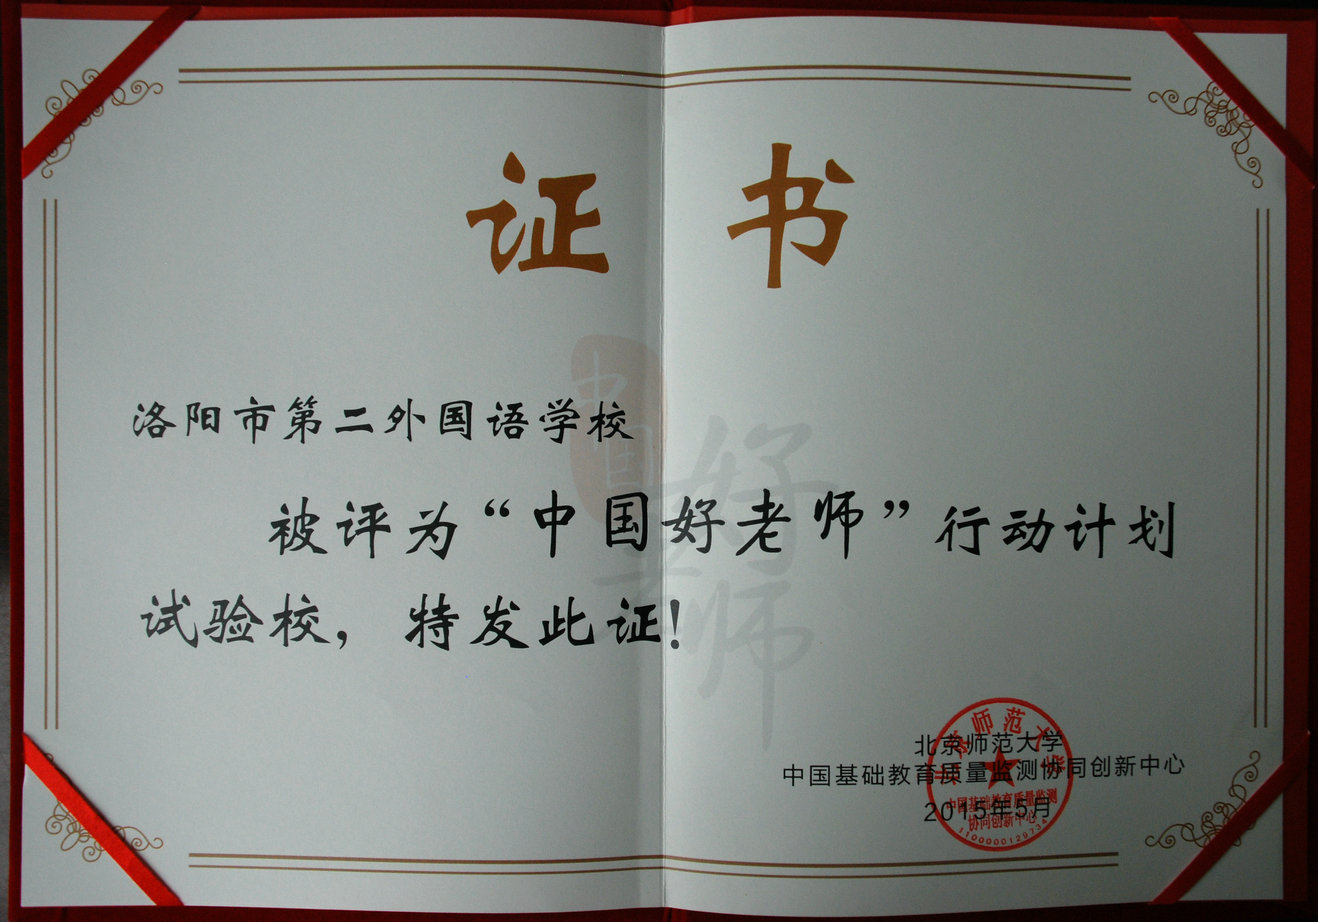 证书
洛阳市第二外国语学校
被评为“中国好老师”行动计划
试验校，特发此证！
北京师范大学
中国基础教育质量监测协同创新中心
2015年5月
北京师范大学
中国基础教育质量监测
协同创新中心
1100000129734
中国
好
老师